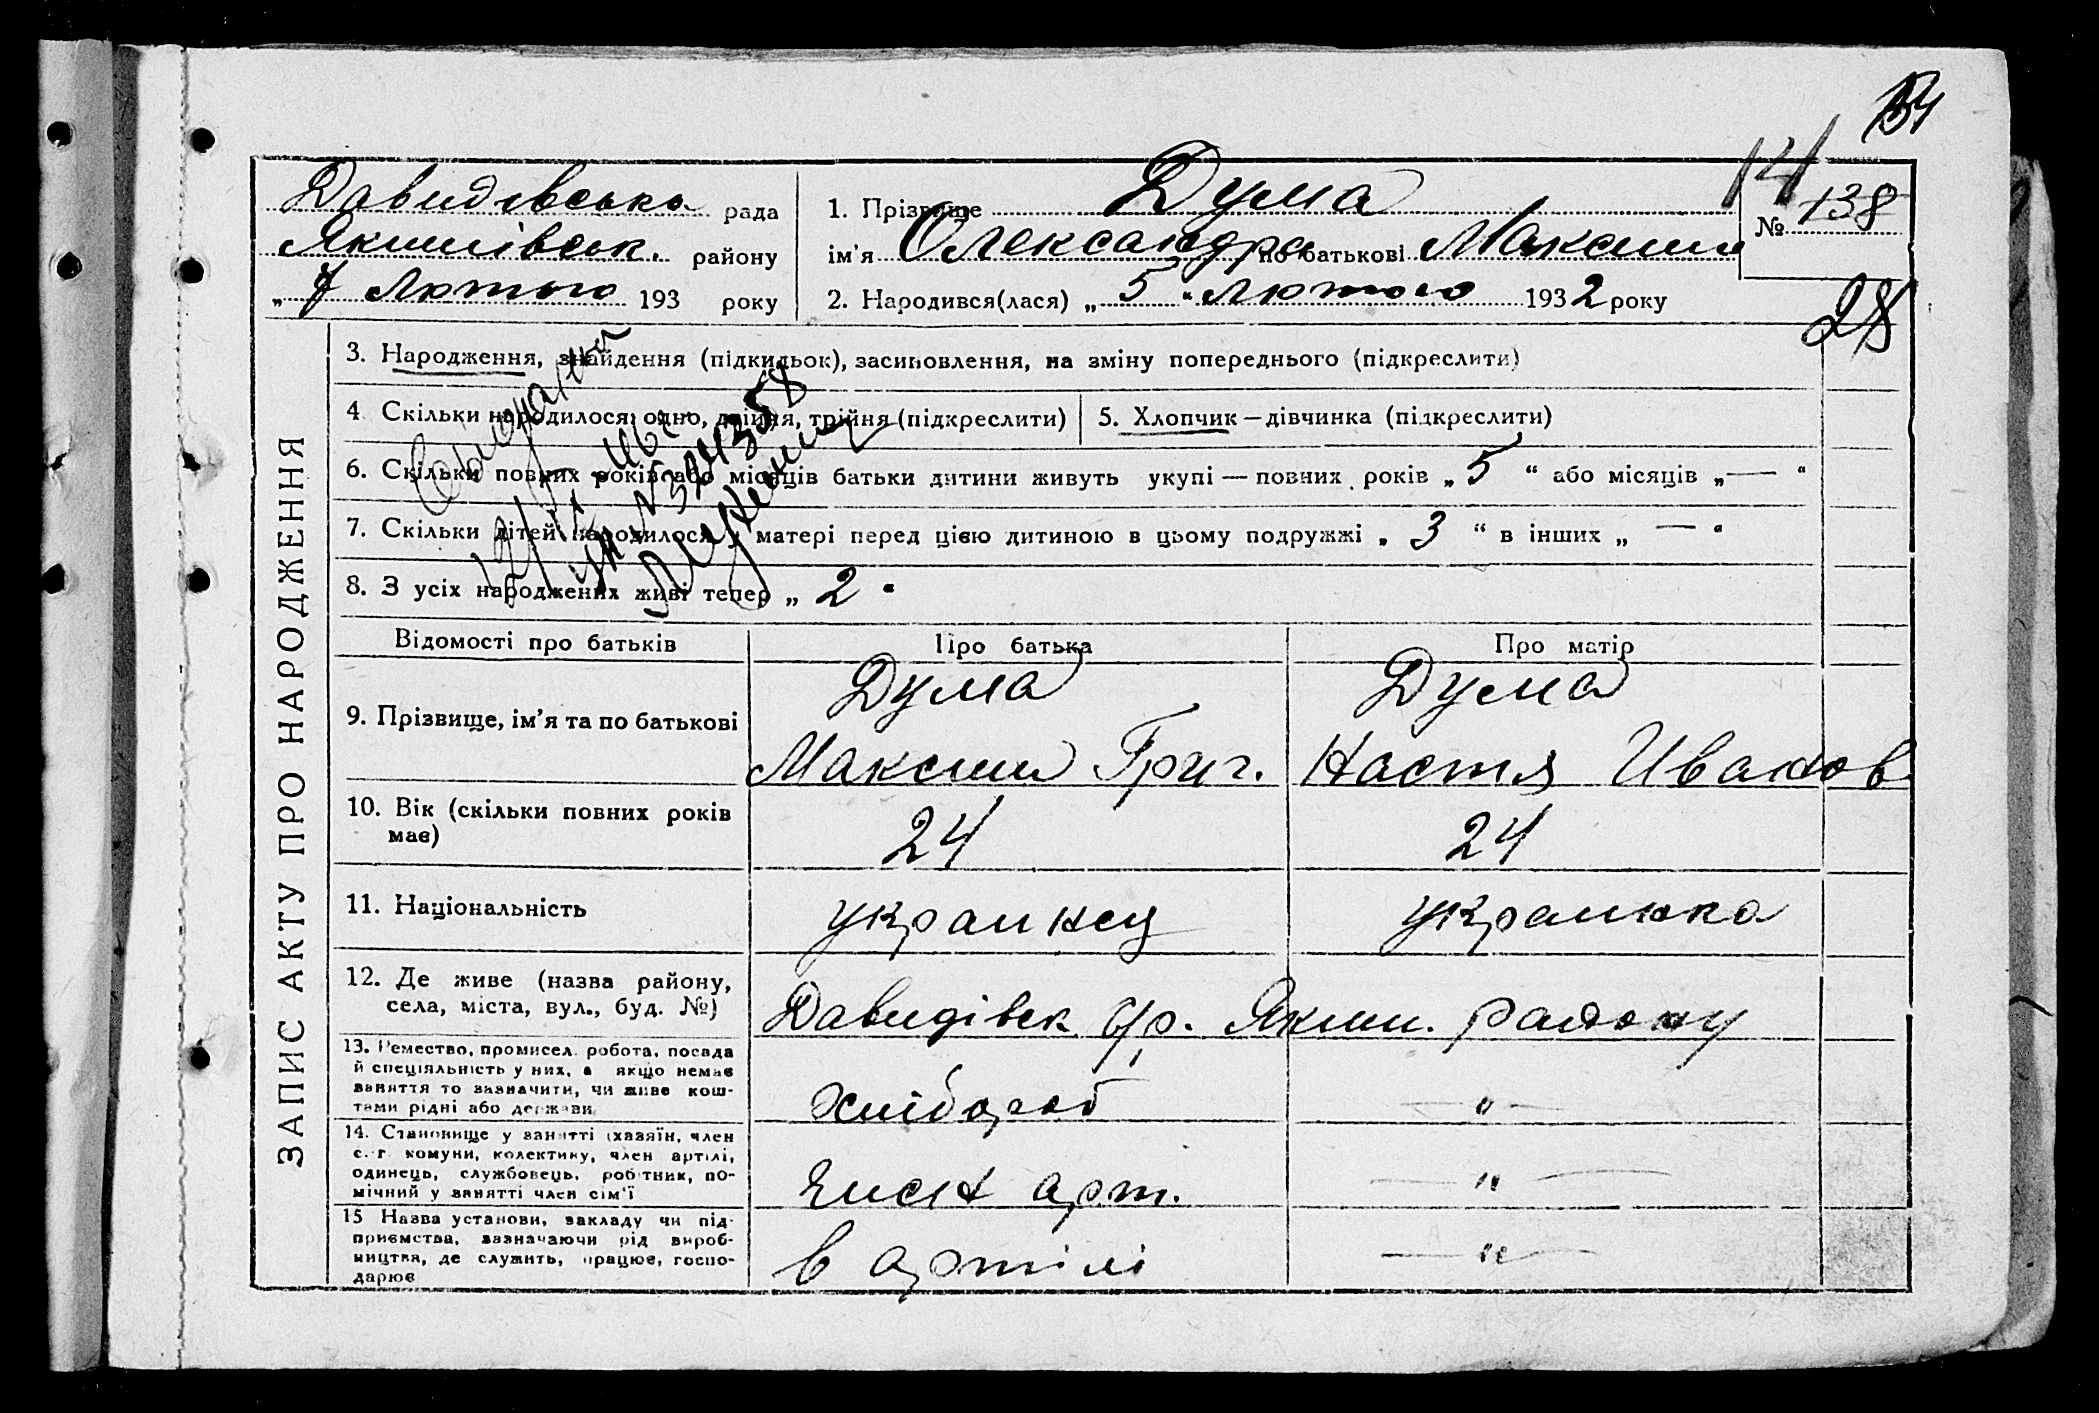 154
14
Давидівська рада
Якимівськ. району
„ 7 Лютого 193 року
1. Прізвище Дума
ім'я Олександра по батькові Максим
2. Народився(лася) „ 5 “ Лютого 1932 року
№ 138
28
ЗАПИС АКТУ ПРО НАРОДЖЕННЯ
3. Народження, знайдення (підкидьок), засиновлення, на зміну попереднього (підкреслити)
4 Скільки народилося: одно, двійня, трійня (підкреслити)
5. Хлопчик — дівчинка (підкреслити)
6. Скільки повних років або місяців батьки дитини живуть укупі — повних років „ 5 “ або місяців „ — “
7. Скільки дітей народилося у матері перед цією дитиною в цьому подружжі „ 3 “ в інших „ — “
8. З усіх народжених живі тепер „ 2 “
Відомості про батьків
Про батька
Про матір
9. Прізвище, ім'я та по батькові
Дума
Максим Григ.
Дума
Настя Иванов
10. Вік (скільки повних років
має)
24
24
11. Національність
украинец
украинка
12. Де живе (назва району,
села, міста, вул., буд. №)
Давидівск с/р. Яким. району
13. Ремество, промисел, робота, посада
й спеціяльність у них, а якщо немає
заняття то зазначити, чи живе кош-
тами рідні або держави
хлібороб
— " —
14. Становище у занятті (хазяїн, член
с.-г. комуни, колективу, член артілі,
одинець, службовець, робітник, по-
мічний у занятті член сім'ї
член арт.
— " —
15 Назва установи, закладу чи під-
приємства, зазначаючи рід вироб-
ництва, де служить, працює, госпо-
дарює
в артілі
— " —